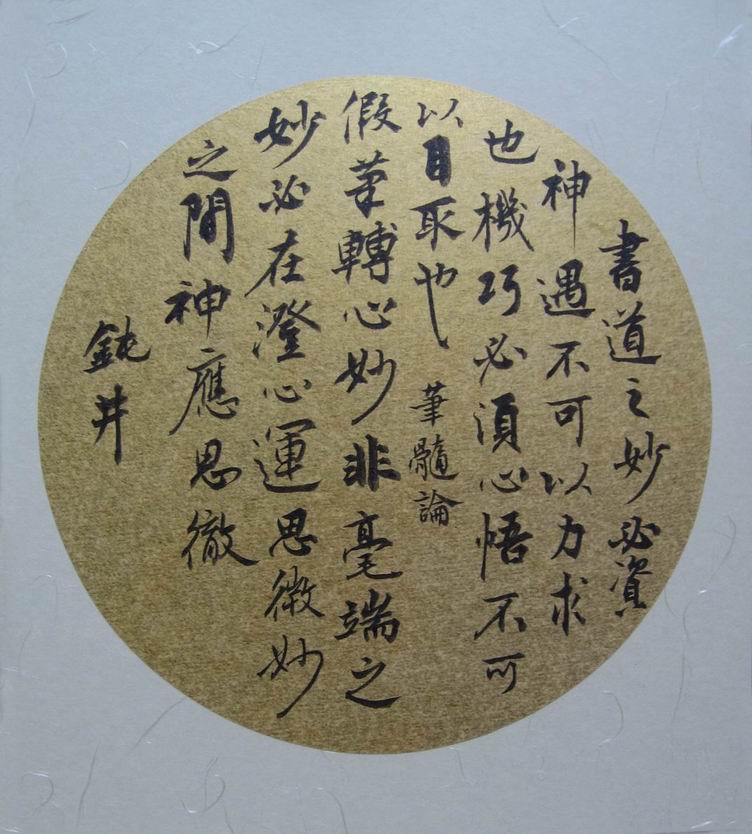 書道之妙必資
神遇不可以力求
也機巧必須心悟不可
以目取也 筆髓論
假筆轉心妙非毫端之
妙必在澄心運思微妙
之間神應思徹
鈍井